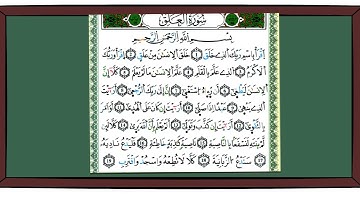 سُورَةُ الْعَلَقِ
بِسْمِ اللَّهِ الرَّحْمَٰنِ الرَّحِيمِ
اقْرَأْ بِاسْمِ رَبِّكَ الَّذِي خَلَقَ ١ خَلَقَ الْإِنسَانَ مِنْ عَلَقٍ ٢ اقْرَأْ وَرَبُّكَ
الْأَكْرَمُ ٣ الَّذِي عَلَّمَ بِالْقَلَمِ ٤ عَلَّمَ الْإِنسَانَ مَا لَمْ يَعْلَمْ ٥ كَلَّا إِنَّ
الْإِنسَانَ لَيَطْغَىٰ ٦ أَن رَّآهُ اسْتَغْنَىٰ ٧ إِنَّ إِلَىٰ رَبِّكَ الرُّجْعَىٰ ٨ أَرَأَيْتَ
الَّذِي يَنْهَىٰ ٩ عَبْدًا إِذَا صَلَّىٰ ١٠ أَرَأَيْتَ إِن كَانَ عَلَى الْهُدَىٰ ١١ أَوْ أَمَرَ
بِالتَّقْوَىٰ ١٢ أَرَأَيْتَ إِن كَذَّبَ وَتَوَلَّىٰ ١٣ أَلَمْ يَعْلَم بِأَنَّ اللَّهَ يَرَىٰ ١٤ كَلَّا لَئِن
لَّمْ يَنتَهِ لَنَسْفَعًا بِالنَّاصِيَةِ ١٥ نَاصِيَةٍ كَاذِبَةٍ خَاطِئَةٍ ١٦ فَلْيَدْعُ نَادِيَهُ
١٧ سَنَدْعُ الزَّبَانِيَةَ ١٨ كَلَّا لَا تُطِعْهُ وَاسْجُدْ وَاقْتَرِب ١٩